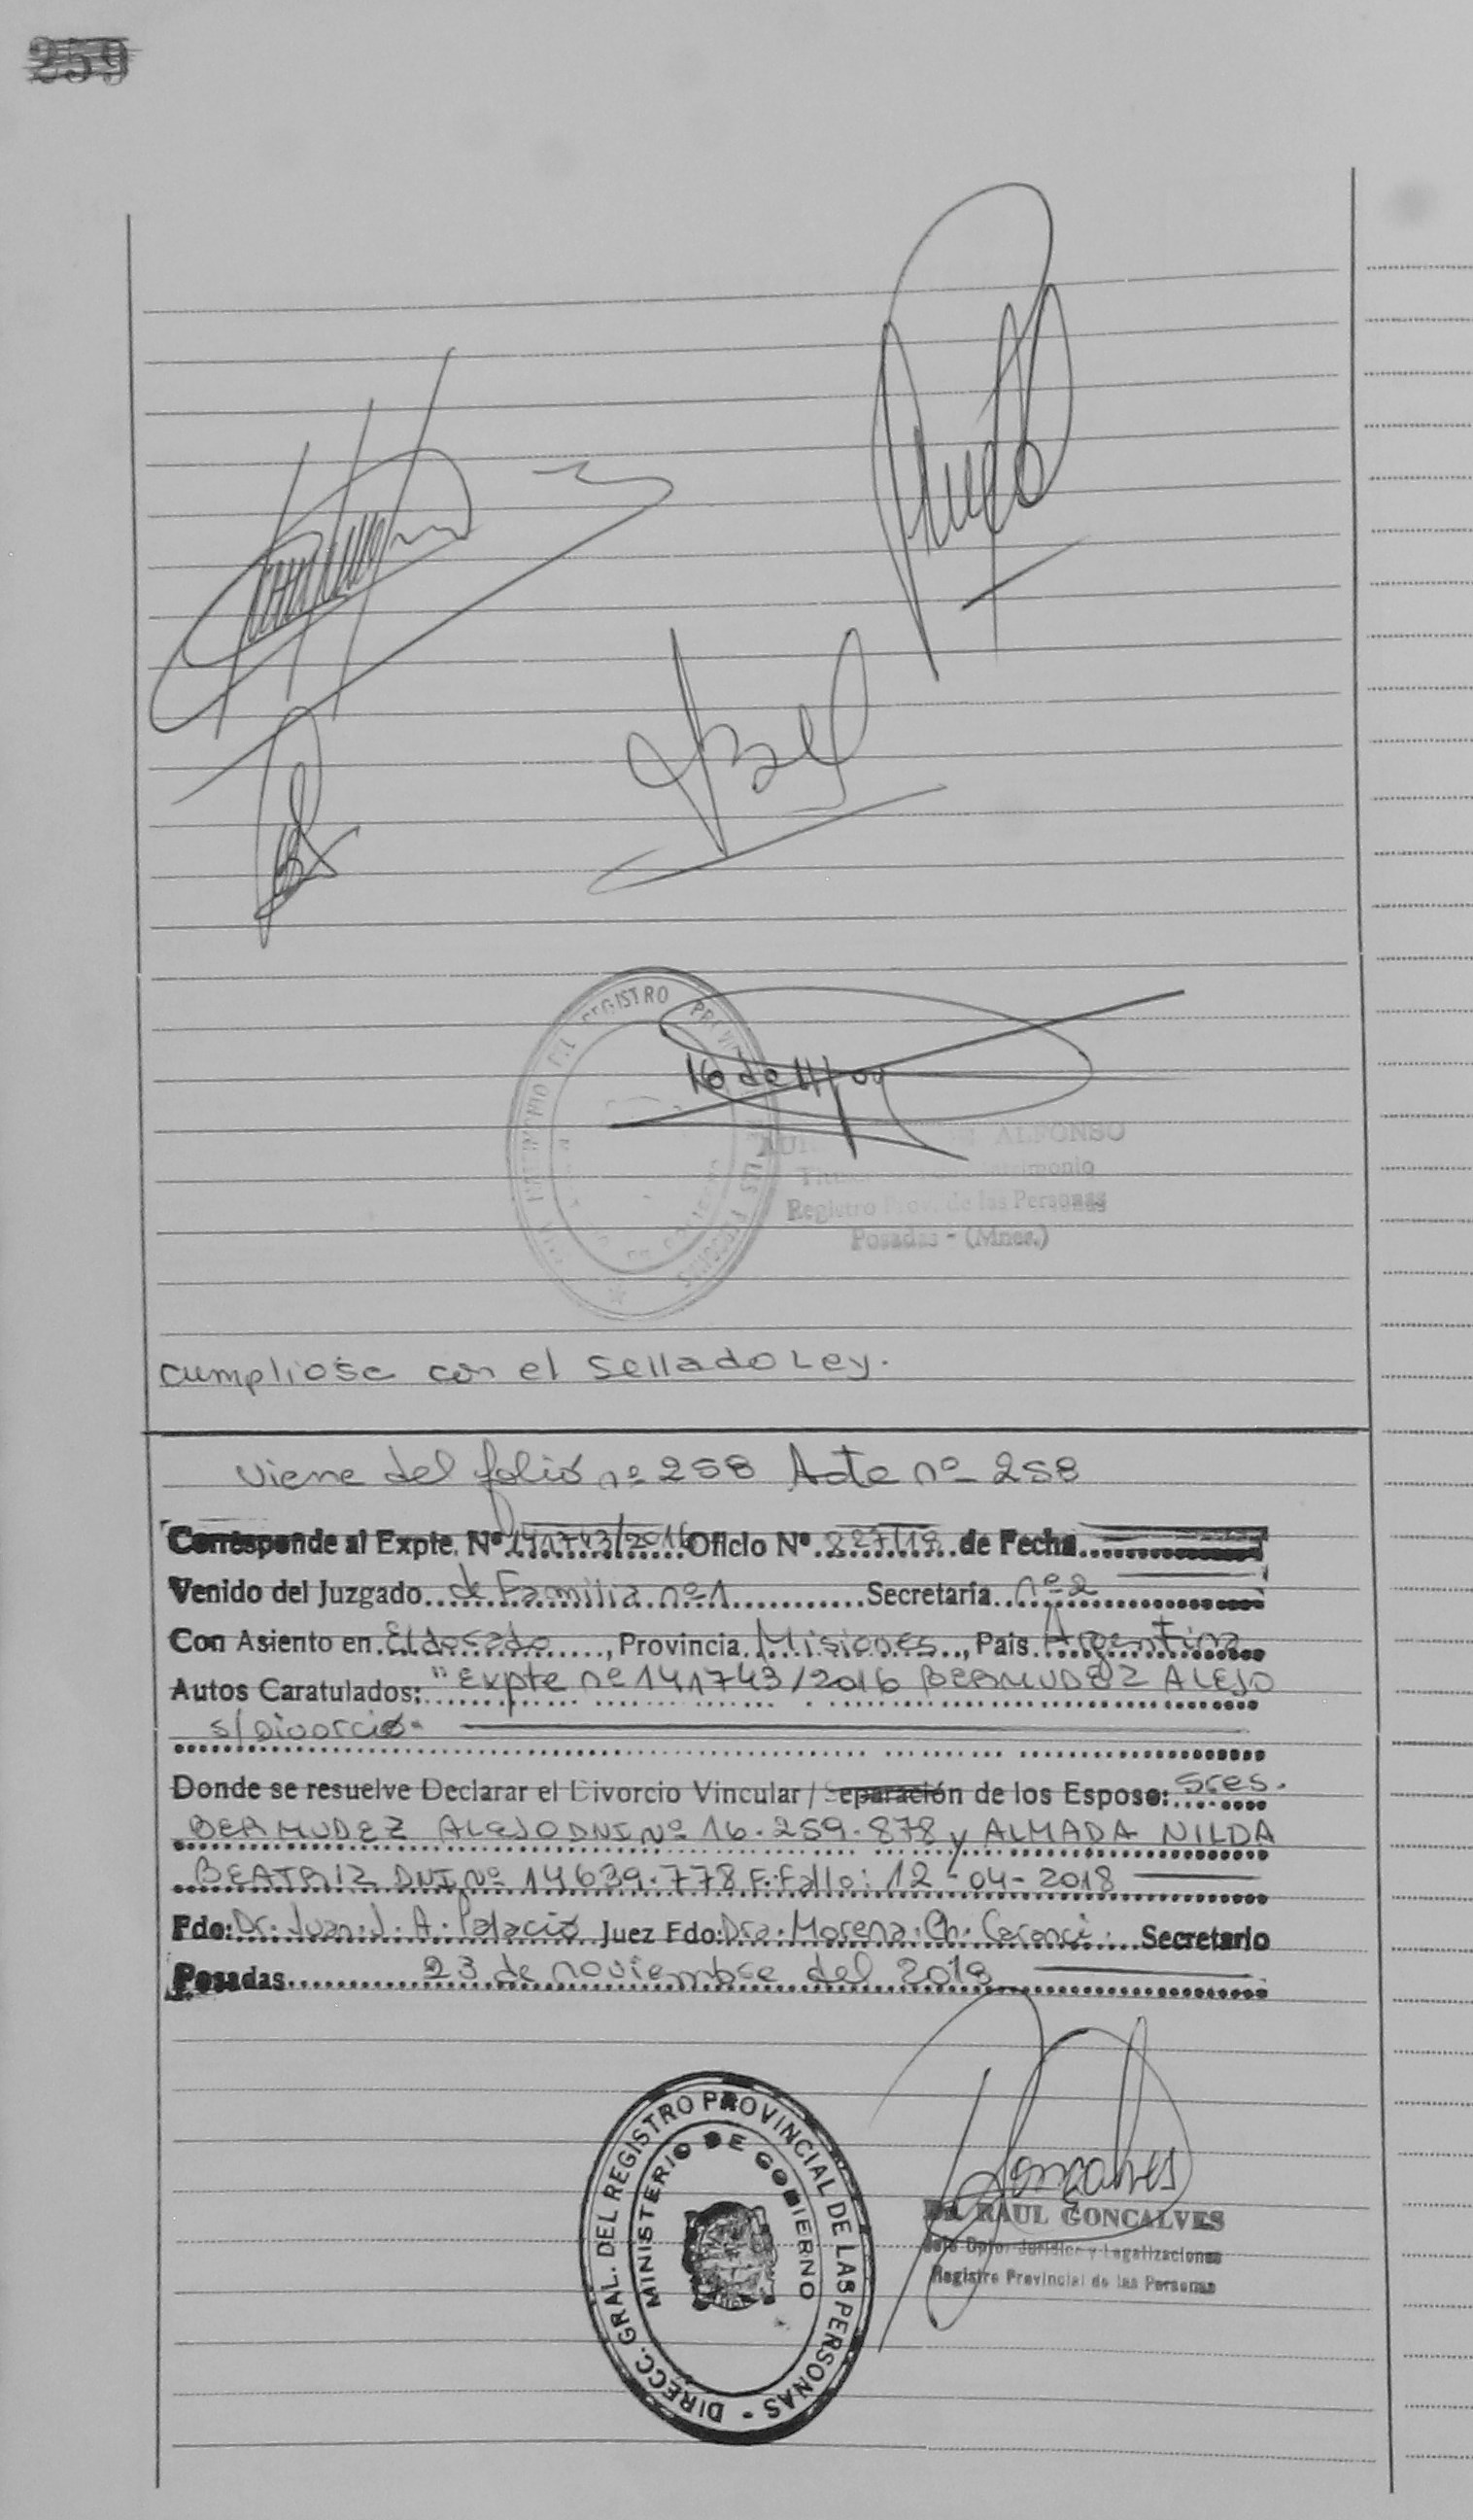 259
REGISTRO
16 de 11/09
ALFONSO
Registro Prov. de las Personas
Posadas - (Mnes.)
cumpliose con el Sellado Ley.
Viene del folio nº 258 Acta nº 258
Corresponde al Expte. Nº 141743/2016 Oficio Nº 227/18 de Fecha
Venido del Juzgado de Familia nº 1 Secretaría nº 2
Con Asiento en Eldorado, Provincia Misiones, País Argentina
Autos Caratulados: "Expte nº 141743/2016 BERMUDEZ ALEJO
s/Divorcio.
Donde se resuelve Declarar el Divorcio Vincular / Separación de los Esposo: Sres.
BERMUDEZ ALEJO DNI Nº 16.259.878 y ALMADA NILDA
BEATRIZ DNI Nº 14639.778 F. Fallo: 12-04-2018
Fdo: Dr. Juan. J. A. Palacio Juez Fdo: Dra. Morena. Ch. Caronci. Secretario
Posadas 23 de noviembre del 2018
DIRECC. GRAL. DEL REGISTRO PROVINCIAL DE LAS PERSONAS -
MINISTERIO DE GOBIERNO
Goncalves
Dr. RAUL GONCALVES
Jefe Dpto. Jurídico y Legalizaciones
Registro Provincial de las Personas